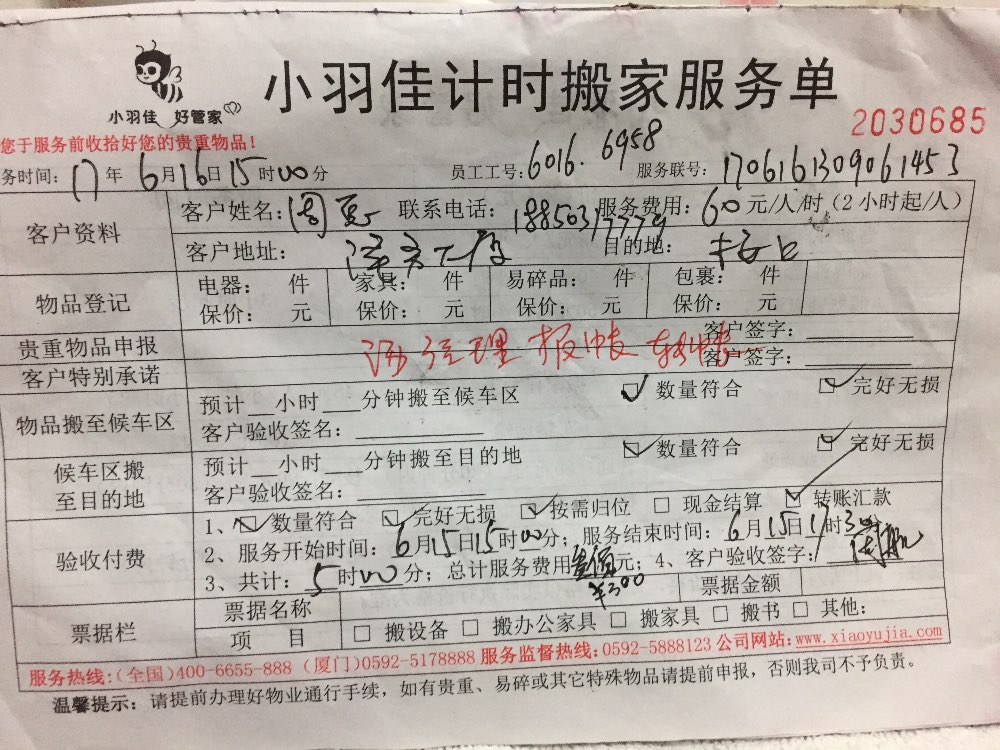 小羽佳 好管家
小羽佳计时搬家服务单
2030685
您于服务前收拾好您的贵重物品！
务时间：17年6月16日15时00分 员工工号：6016．6958 服务联号：1706161309061453
客户资料
客户姓名：周 联系电话：18850317779 服务费用：60元/人/时（2小时起/人）
客户地址： 目的地：
物品登记
电器： 件 家具： 件 易碎品： 件 包裹： 件
保价： 元 保价： 元 保价： 元 保价： 元
贵重物品申报 客户签字：
经理报帐 转帐
客户特别承诺 客户签字：
物品搬至候车区
预计__小时___分钟搬至候车区 ☑数量符合 ☑完好无损
客户验收签名：
候车区搬至目的地
预计__小时___分钟搬至目的地 ☑数量符合 ☑完好无损
客户验收签名：
验收付费
1、☑数量符合 ☑完好无损 ☑按需归位 □现金结算 ☑转账汇款
2、服务开始时间：6月15日15时00分；服务结束时间：6月15日17时30
3、共计：5时00分；总计服务费用 元；4、客户验收签字：
¥300
票据栏
票据名称 票据金额
项 目 □搬设备 □搬办公家具 □搬家具 □搬书 □其他:
服务热线:(全国)400-6655-888 (厦门)0592-5178888 服务监督热线:0592-5888123 公司网站:www.xiaoyujia.com
温馨提示：请提前办理好物业通行手续，如有贵重、易碎或其它特殊物品请提前申报，否则我司不予负责。